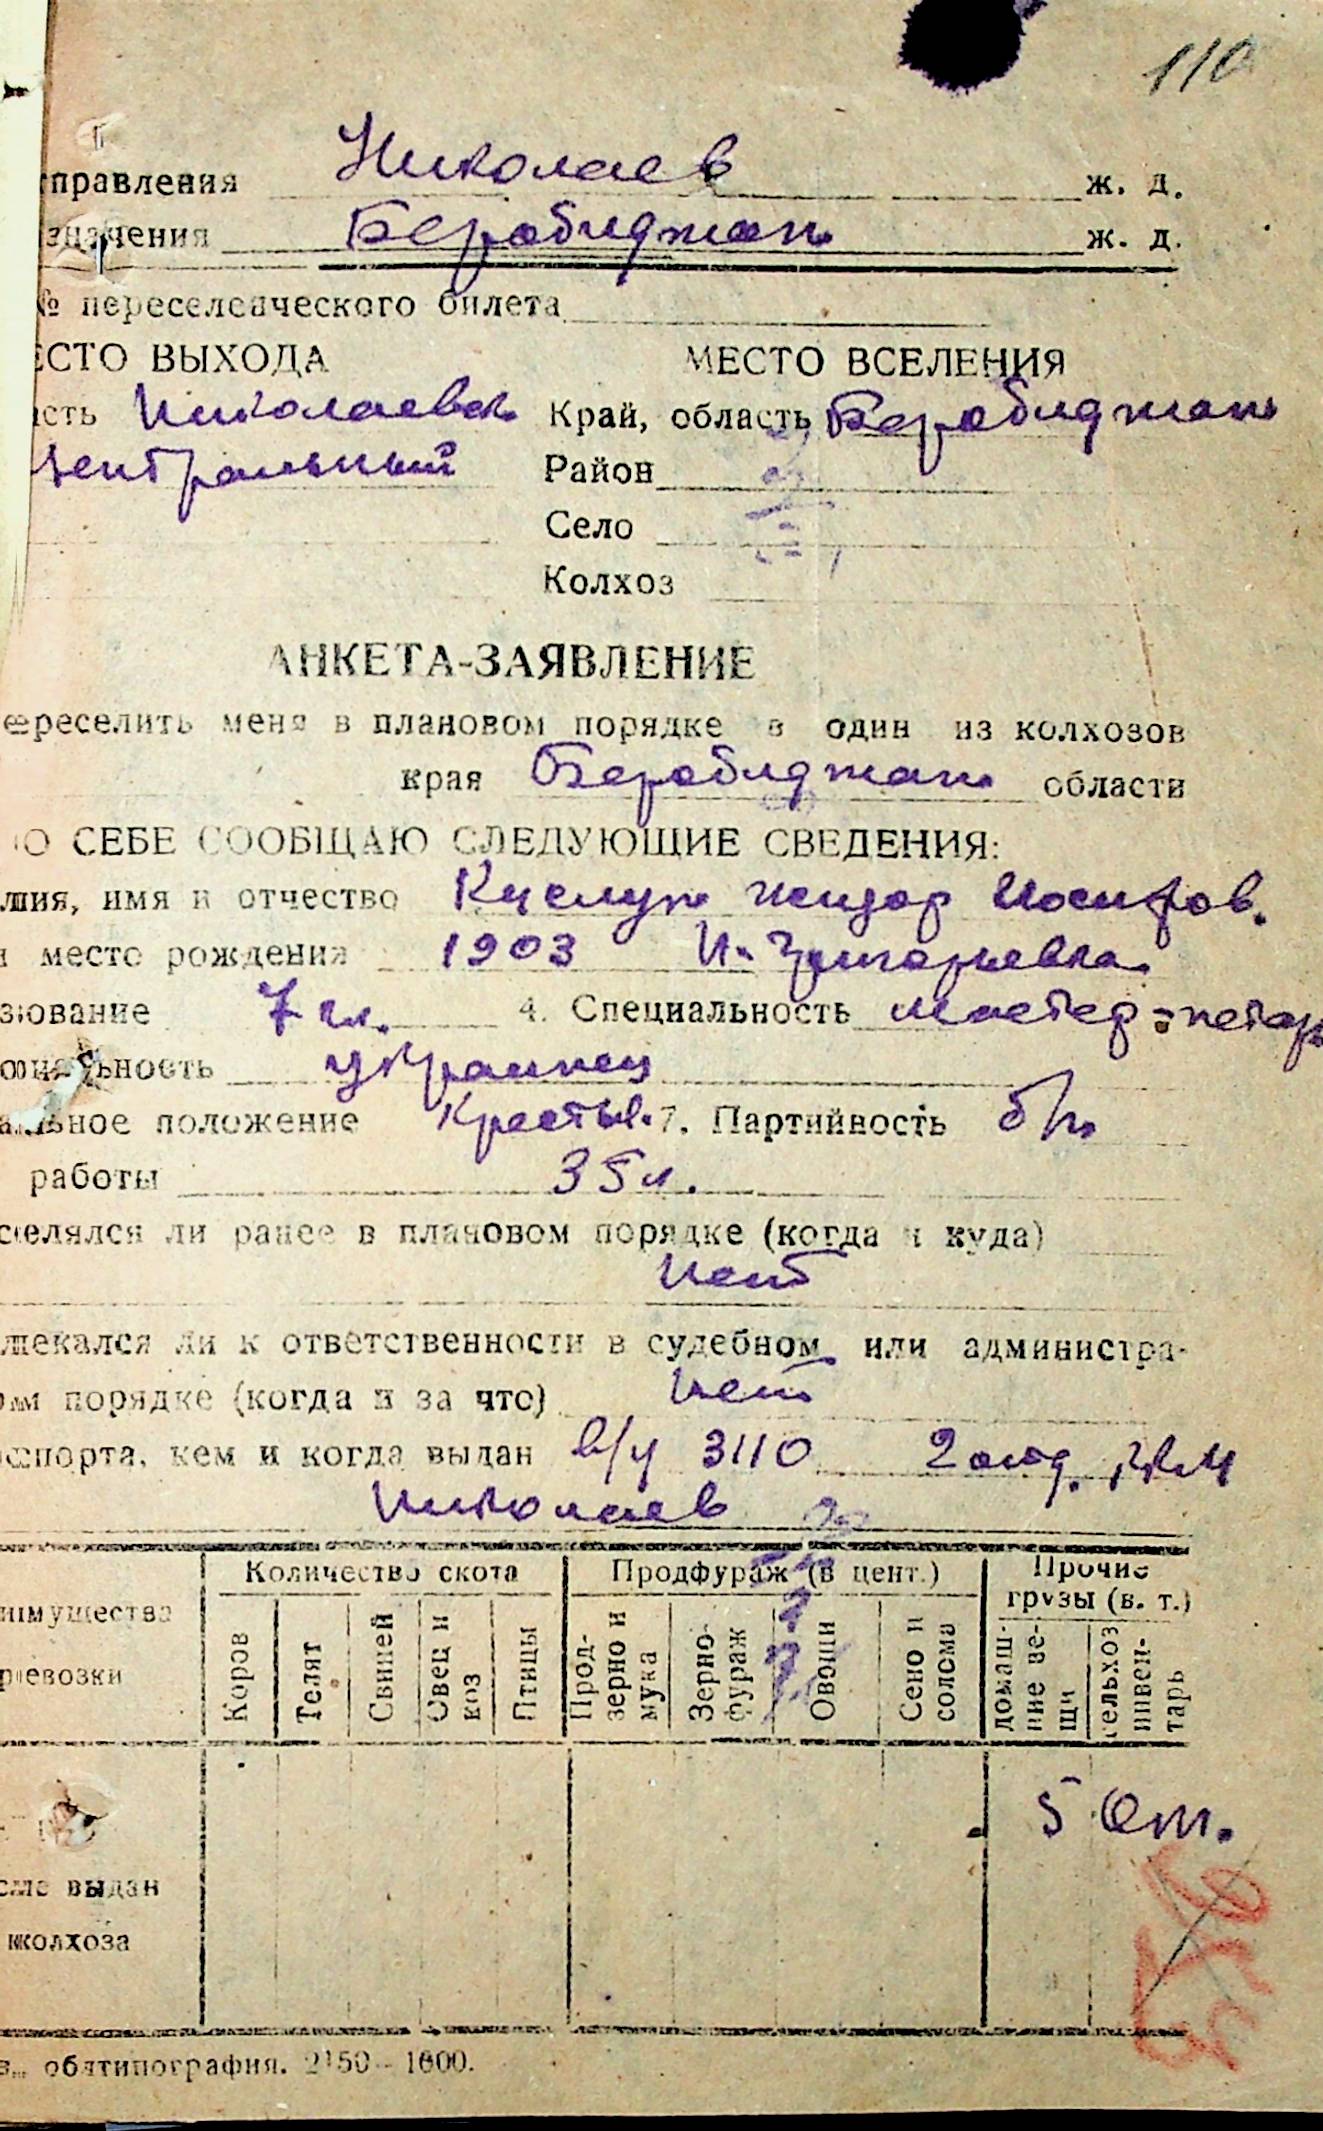 110
тправления Николаев ж. д.
значения Беробиджан ж. д.
№ переселенческого билета
ЕСТО ВЫХОДА МЕСТО ВСЕЛЕНИЯ
асть Николаевск Край, область Беробиджан
Центральный Район
Село
Колхоз
АНКЕТА-ЗАЯВЛЕНИЕ
ереселить меня в плановом порядке в один из колхозов
края Беробиджан области
О СЕБЕ СООБЩАЮ СЛЕДУЮЩИЕ СВЕДЕНИЯ:
илия, имя и отчество Иосифов.
и место рождения 1903 И. Григорьевка
зование 7 кл. 4. Специальность мастер-
ональность украинец
альное положение Крестьян. 7. Партийность б/п
работы 35 л.
селялся ли ранее в плановом порядке (когда и куда)
Нет
лекался ли к ответственности в судебном или администра-
ом порядке (когда и за что) Нет
спорта, кем и когда выдан 3110 2 отд.
Николаев
имущества Количество скота Продфураж (в цент.) Прочие грузы (в. т.)
ревозки Коров Телят Свиней Овец и коз Птицы Прод-зерно и мука Зерно-фураж Овощи Сено и солома домаш-ние ве-щи сельхоз инвен-тарь
5
сле выдан
колхоза
обятипография. 2150 - 1000.